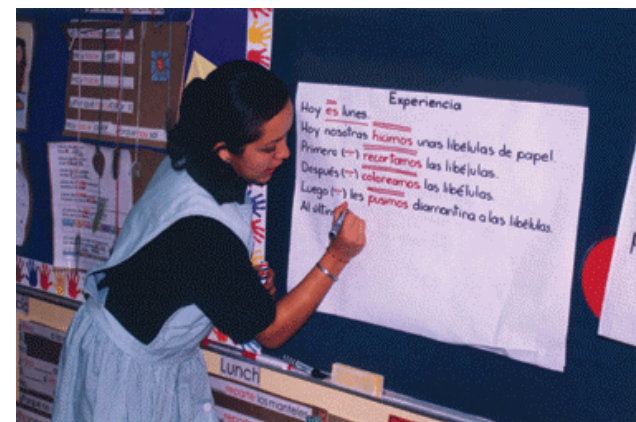 Experiencia
Hoy es lunes.
Hoy nosotras hicimos unas libélulas de papel.
Primero (—) recortamos las libélulas.
Después (—) coloreamos las libélulas.
Luego (—) les pusimos diamantina a las libélulas.
Al últim
Lunch
recorte los manteles